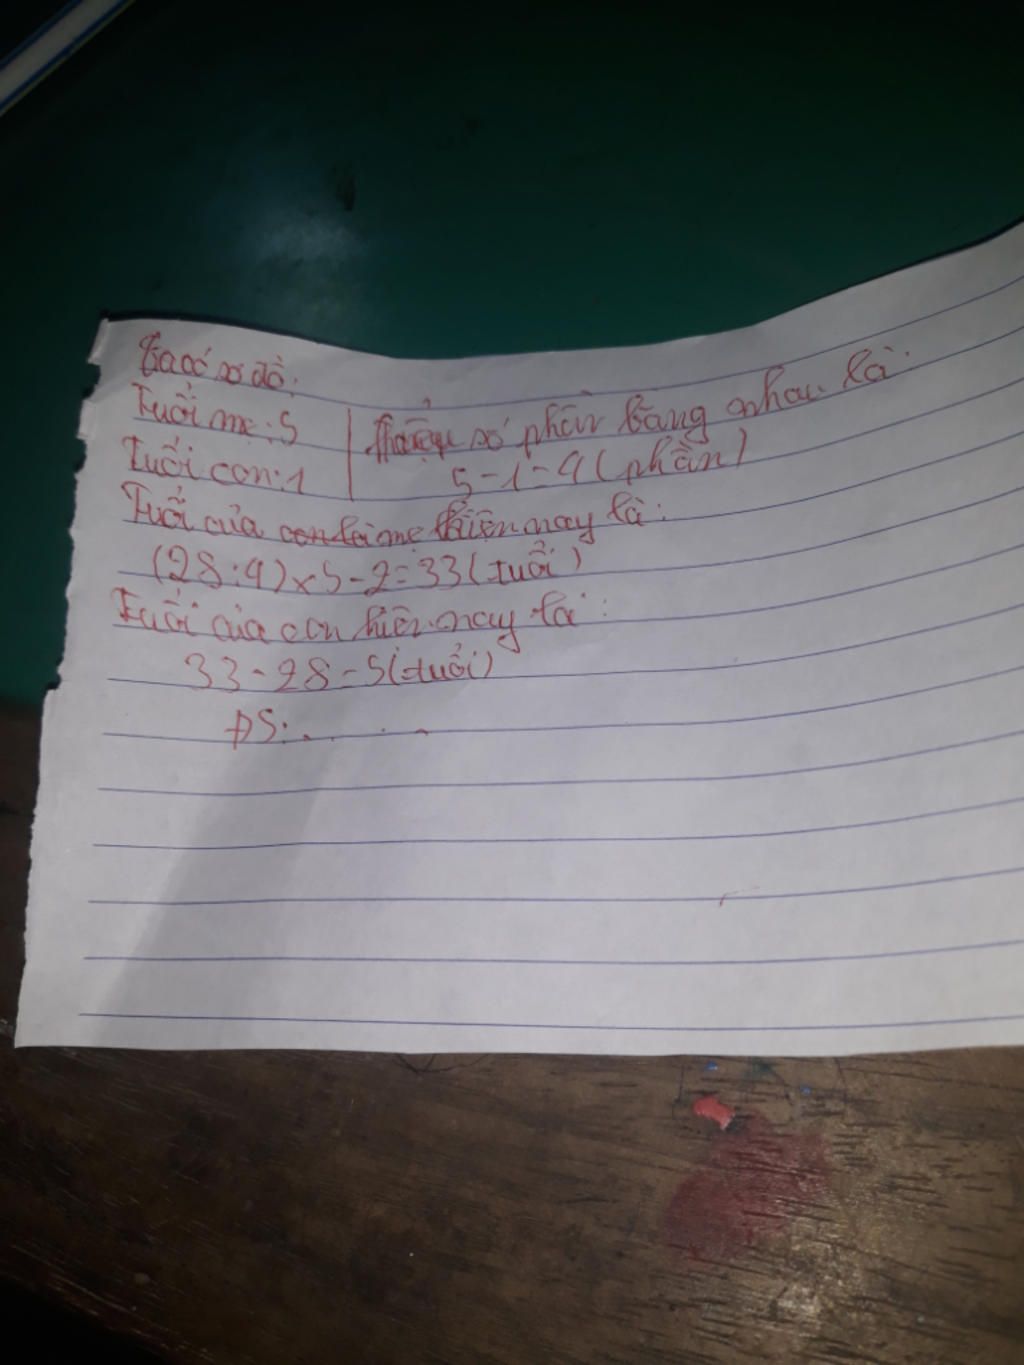 Ta có sơ đồ:
Tuổi mẹ: 5 | Hiệu số phần bằng nhau là:
Tuổi con: 1 | 5 - 1 = 4 (phần)
Tuổi của mẹ hiện nay là:
(28 : 4) x 5 - 2 = 33 (tuổi)
Tuổi của con hiện nay là:
33 - 28 = 5 (tuổi)
ĐS: . . . .